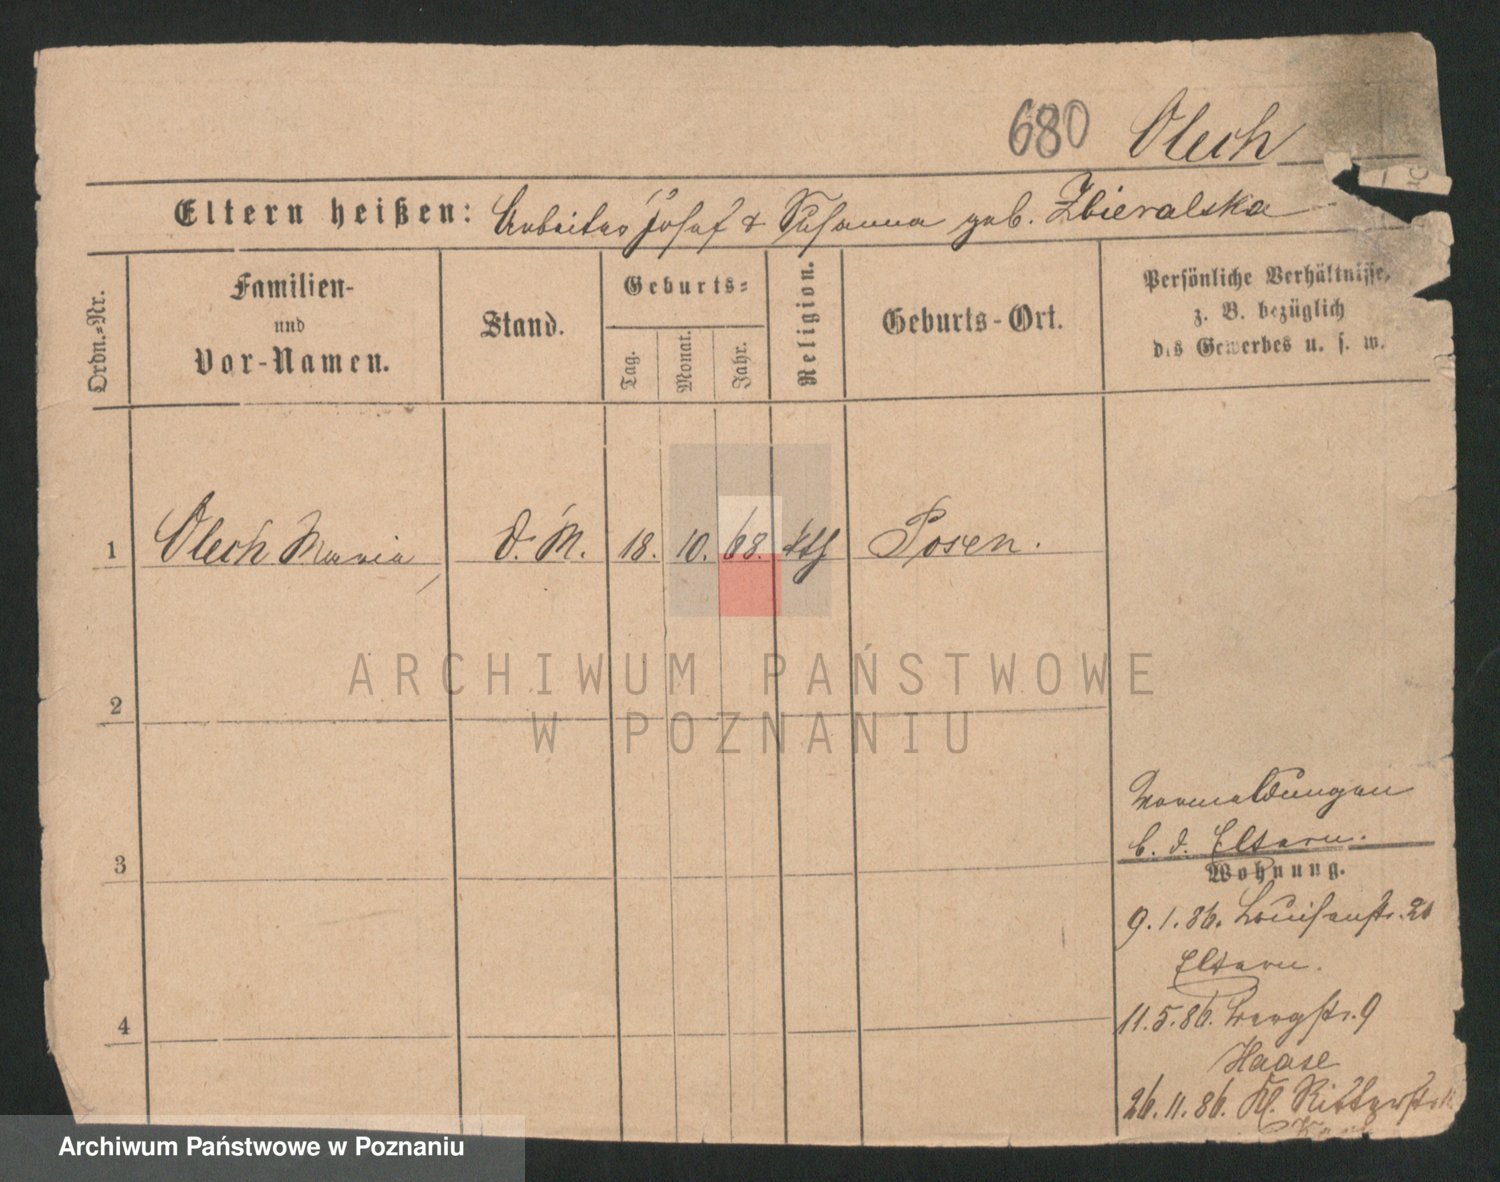 680 Olech
Eltern heißen: Arbeiter Josef & Susanna geb. Zbieralska
Ordn.=Nr.
Familien-
und
Vor-Namen.
Stand.
Geburts=
Tag.
Monat.
Jahr.
Religion.
Geburts-Ort.
Persönliche Verhältnisse,
z. B. bezüglich
des Gewerbes u. s. w.
1 Olech Maria D. M. 18. 10. 68. kth Posen.
2
3
4
Vormeldungen
b. d. Eltern.
Wohnung.
9.1.86. Louisenstr.
Eltern.
11.5.86. Bergstr. 9
Haase
26.11.86. Kl. Ritterstr.
ARCHIWUM PAŃSTWOWE
W POZNANIU
Archiwum Państwowe w Poznaniu